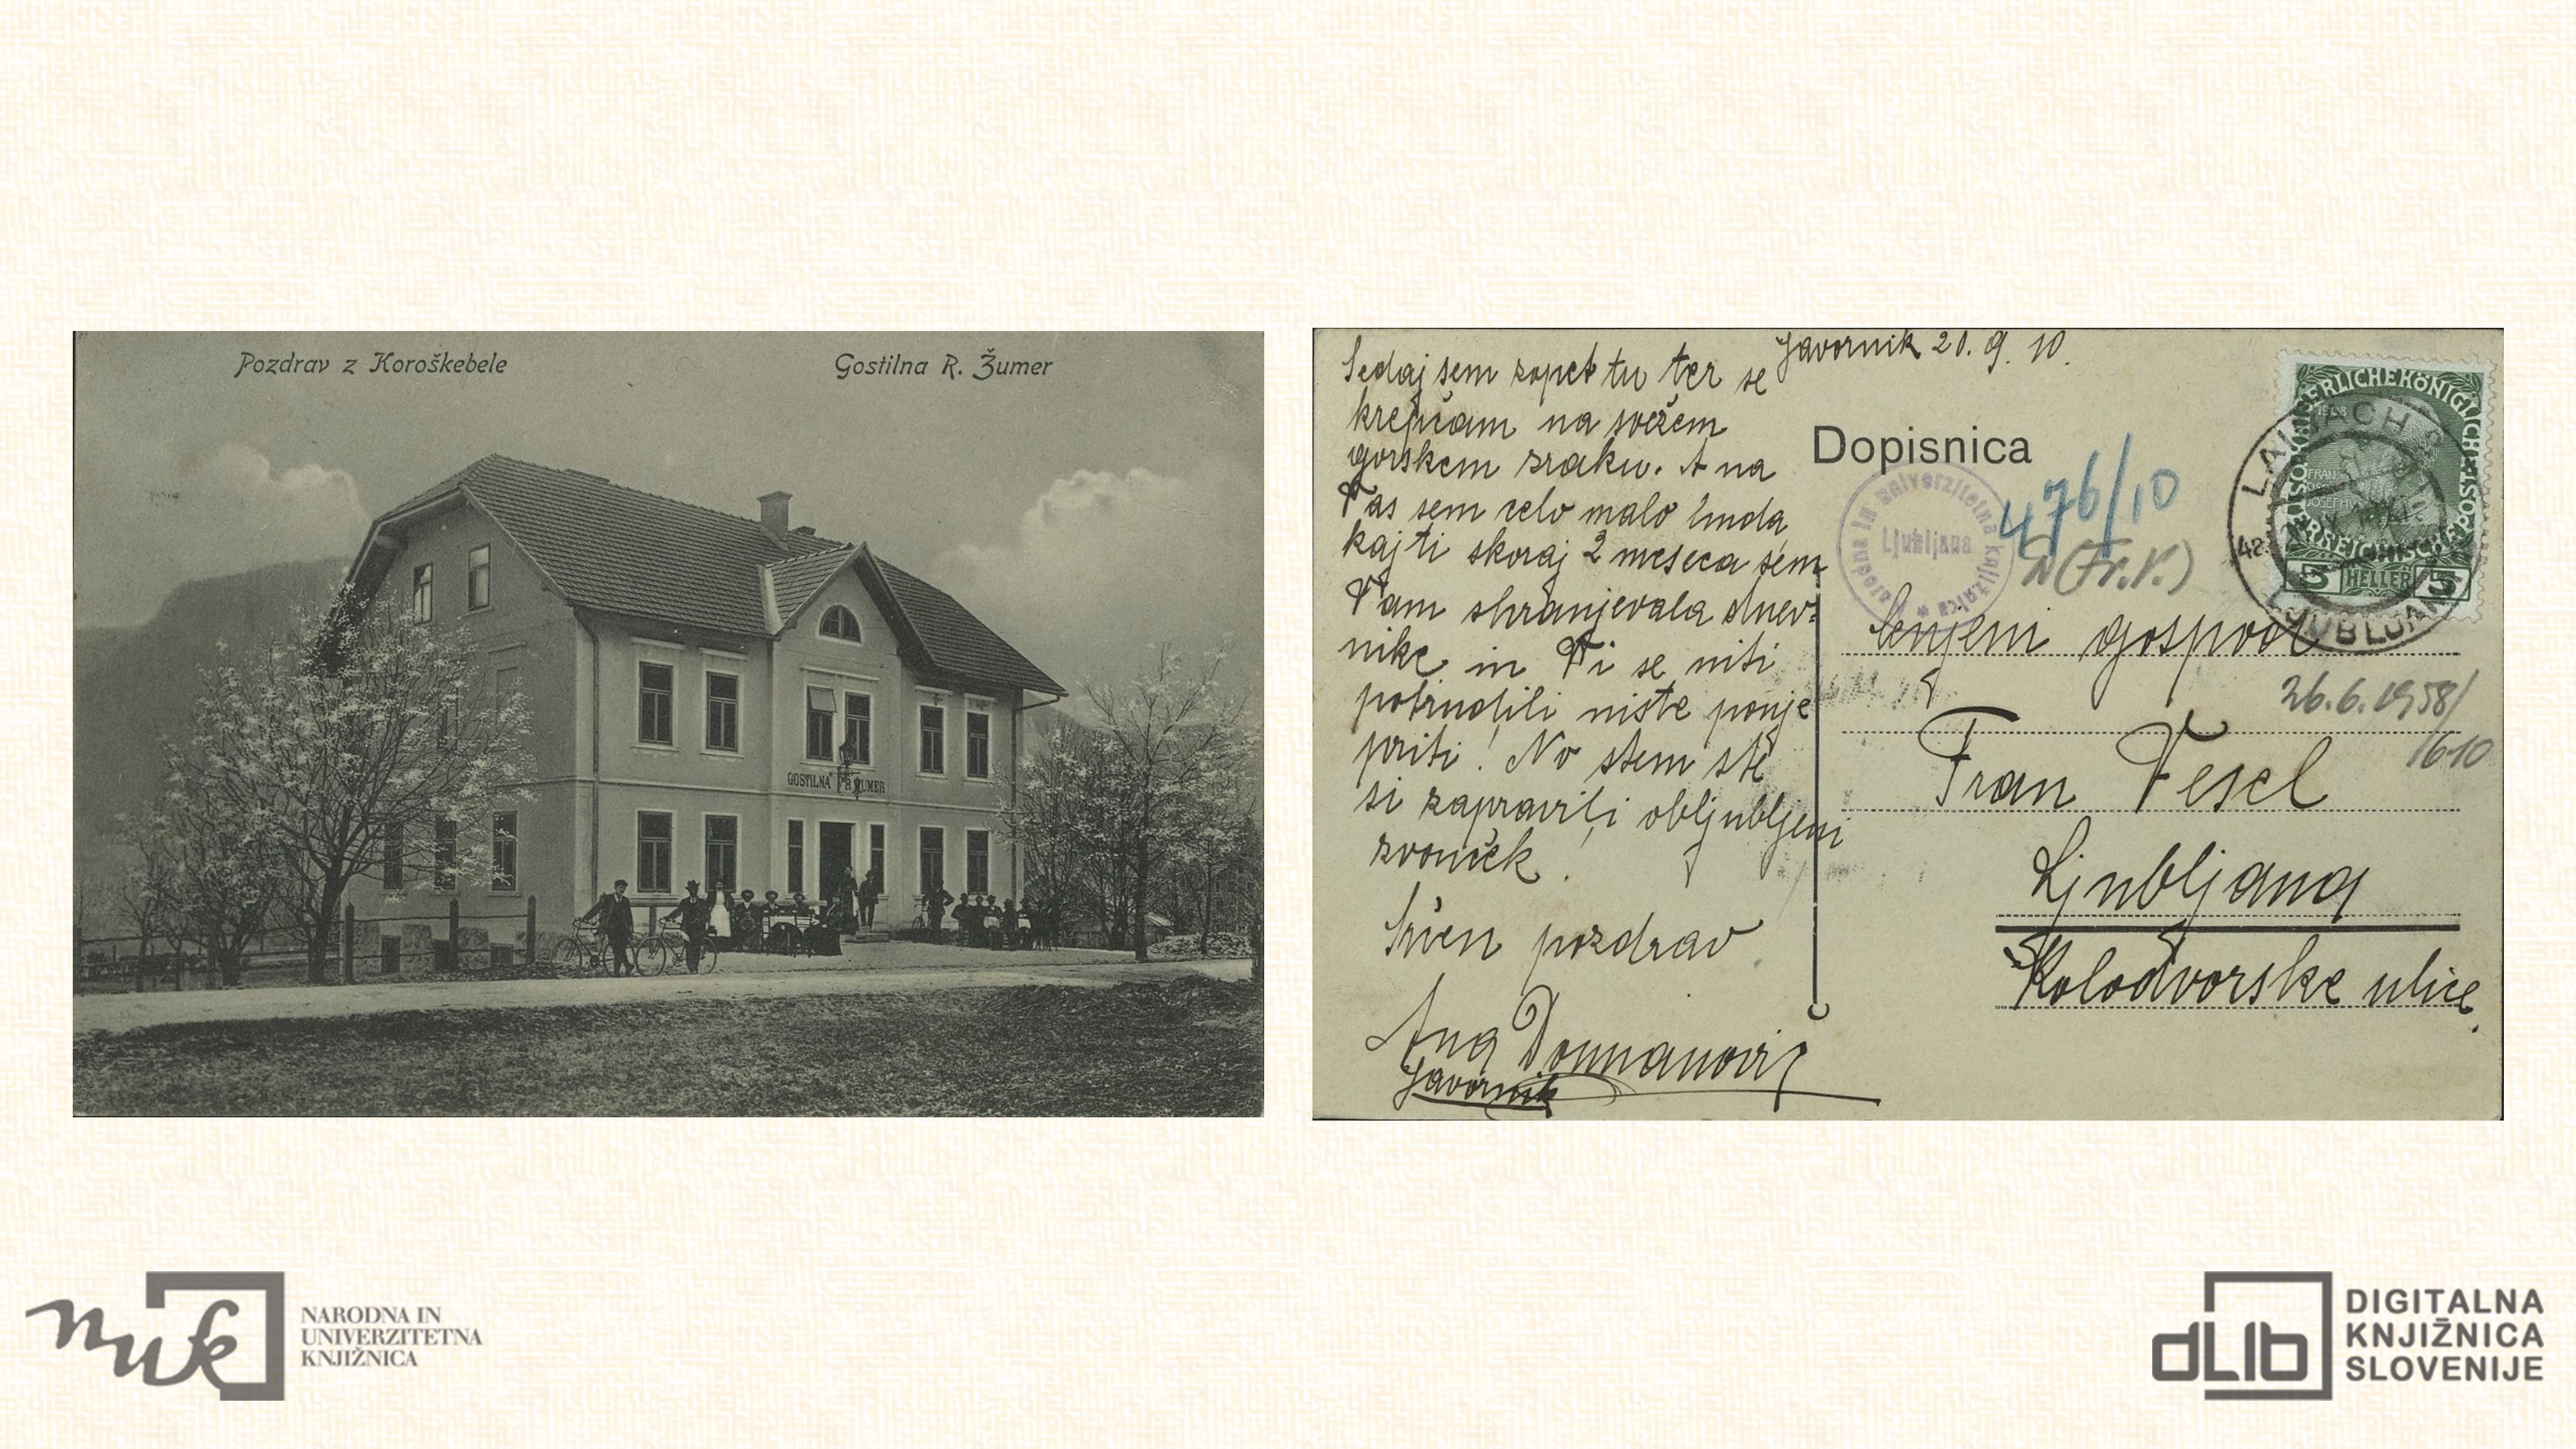 Pozdrav z Koroškebele
Gostilna R. Žumer
GOSTILNA R. ŽUMER
Javornik 20. 9. 10.
Sedaj sem zopet tu ter se
krepčam na svežem
gorskem zraku. A na
Vas sem celo malo huda,
kajti skoraj 2 meseca sem
Vam shranjevala dnev=
nike in Vi se niti
potrudili niste ponje
priti! No s tem ste
si zapravili obljubljeni
zvonček!
Srčen pozdrav
Javornik
Dopisnica
Narodna in univerzitetna knjižnica
Ljubljana
476/10
(Fr.V.)
LAIBACH
LJUBLJANA
1908
5 HELLER 5
Cenjeni gospod
26.6.1958/
1610
Fran Vesel
Ljubljana
Kolodvorske ulice
nuk
NARODNA IN
UNIVERZITETNA
KNJIŽNICA
dLib
DIGITALNA
KNJIŽNICA
SLOVENIJE